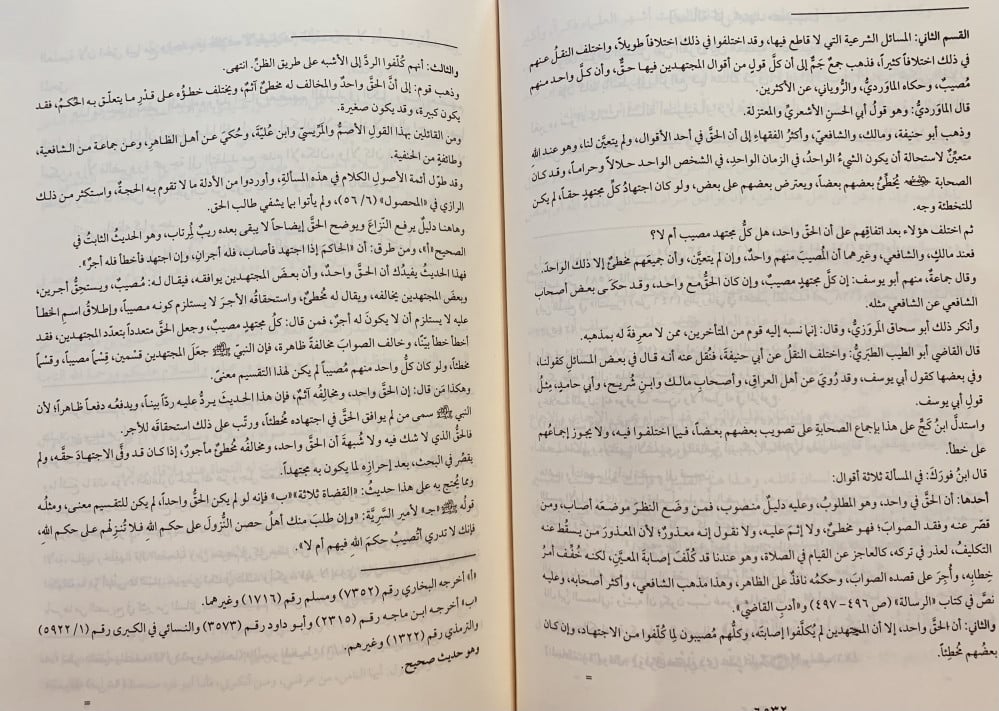 القسم الثاني: المسائل الشرعية التي لا قاطع فيها، وقد اختلفوا في ذلك اختلافاً طويلاً، واختلف النقلُ عنهم
في ذلك اختلافاً كثيراً، فذهب جمعٌ جَمٌّ إلى أن كلَّ قولٍ من أقوال المجتهدين فيها حقٌّ، وأن كلَّ واحد منهم
مُصيبٌ، وحكاه الماوَرديُّ، والرُّوياني، عن الأكثرين.
قال الماوَرديُّ: وهو قولُ أبي الحسنِ الأشعريِّ والمعتزلة.
وذهب أبو حنيفة، ومالك، والشافعيّ، وأكثرُ الفقهاءِ إلى أن الحقَّ في أحد الأقوال، ولم يتعيَّن لنا، وهو عند الله
متعيِّنٌ لاستحالة أن يكون الشيءُ الواحدُ، في الزمان الواحدِ، في الشخص الواحد حلالاً وحراماً، وقد كان
الصحابة ﵃ يُخطِّئُ بعضُهم بعضاً، ويعترض بعضهم على بعض، ولو كان اجتهادُ كلِّ مجتهدٍ حقاً، لم يكن
للتخطئة وجه.
ثم اختلف هؤلاء بعد اتفاقِهم على أن الحقَّ واحد، هل كلُّ مجتهد مصيب أم لا؟
فعند مالكٍ، والشافعي، وغيرهما أن المُصيبَ منهم واحدٌ، وإن لم يتعيَّن، وأن جميعَهم مخطئٌ إلا ذلك الواحدَ.
وقال جماعةٌ، منهم أبو يوسف: إن كلَّ مجتهدٍ مصيبٌ، وإن كان الحقُّ مع واحد، وقد حكى بعض أصحاب
الشافعي عن الشافعي مثله.
وأنكر ذلك أبو سحاق المَروَزيُّ، وقال: إنما نسبه إليه قوم من المتأخرين، ممن لا معرِفةَ له بمذهبه.
قال القاضي أبو الطيب الطبَريُّ: واختلف النقلُ عن أبي حنيفةَ، فنُقل عنه أنه قال في بعض المسائلِ كقولنا،
وفي بعضها كقول أبي يوسفَ، وقد رُويَ عن أهل العراقِ، وأصحابِ مالك وابنِ شُريح، وأبي حامدٍ، مثلُ
قولِ أبي يوسف.
واستدلَّ ابنُ كَجٍّ على هذا بإجماع الصحابةِ على تصويب بعضِهم بعضاً، فيما اختلفوا فيه، ولا يجوز إجماعُهم
على خطأ.
قال ابنُ فورَك: في المسألة ثلاثة أقوال:
أحدها: أن الحقَّ في واحد، وهو المطلوبُ، وعليه دليلٌ منصوب، فمن وضَع النظرَ موضعَه أصاب، ومن
قصّر عنه وفقد الصوابَ؛ فهو مخطئٌ، ولا إثمَ عليه، ولا نقول إنه معذورٌ؛ لأن المعذورَ من يسقُط عنه
التكليفُ، لعذر في تركه، كالعاجز عن القيام في الصلاة، وهو عندنا قد كُلِّفَ إصابةَ المعيّنِ، لكنه خُفِّف أمرُ
خِطابِه، وأُجِرَ على قصده الصوابَ، وحكمُه نافذٌ على الظاهر، وهذا مذهب الشافعي، وأكثر أصحابه، وعليه
نصَّ في كتاب «الرسالة» (ص ٤٩٦ - ٤٩٧) و«أدب القاضي».
والثاني: أن الحقَّ واحد، إلا أن المجتهدين لم يُكلَّفوا إصابتَه، وكلُّهم مصيبون لِما كُلّفوا من الاجتهاد، وإن كان
بعضُهم مُخطِئاً.
والثالث: أنهم كُلِّفوا الردَّ إلى الأشبه على طريق الظنِّ. انتهى.
وذهب قوم: إلى أن الحقَّ واحدٌ والمخالف له مخطئٌ آثمٌ، ويختلف خطؤُه على قدْر ما يتعلّق به الحُكمُ، فقد
يكون كبيرة، وقد يكون صغيرة.
ومن القائلين بهذا القولِ الأصمُّ والمَرِّيسيُّ وابن عُليَّة، وحُكيَ عن أهل الظاهرِ، وعن جماعة من الشافعية،
وطائفةٍ من الحنفية.
وقد طوّل أئمة الأصولِ الكلام في هذه المسألةِ، وأوردوا من الأدلة ما لا تقوم به الحجةُ، واستكثر من ذلك
الرازي في «المحصول» (٥٦/٦)، ولم يأتوا بما يشفي طالب الحق.
وهاهنا دليلٌ يرفع النّزاعَ ويوضح الحقَّ إيضاحاً لا يبقى بعده ريبٌ لمرتاب، وهو الحديثُ الثابتُ في
الصحيح«أ»، ومن طرق: أن «الحاكمَ إذا اجتهد فأصاب، فله أجرانِ، وإن اجتهد فأخطأ فله أجرٌ».
فهذا الحديثُ يفيدُك أن الحقَّ واحدٌ، وأن بعضَ المجتهدين يوافقه، فيقال له: مُصيبٌ، ويستحِقُّ أجرين،
وبعضَ المجتهدين يخالفه، ويقال له مُخطئٌ، واستحقاقُه الأجرَ لا يستلزم كونَه مصيباً، وإطلاقُ اسمِ الخطأ
عليه لا يستلزم أن لا يكونَ له أجرٌ، فمن قال: كلُّ مجتهدٍ مصيبٌ، وجعل الحقَّ متعدداً بتعدّد المجتهدين، فقد
أخطأ خطأ بيّناً، وخالف الصوابَ مخالفةً ظاهرة، فإن النبيَّ ﷺ جعَل المجتهدين قسمين، قِسْماً مصيباً، وقسْماً
مخطئاً، ولو كان كلُّ واحد منهم مُصيباً لم يكن لهذا التقسيم معنىً.
وهكذا مَن قال: إن الحقَّ واحد، ومخالفُه آثمٌ، فإن هذا الحديثَ يردُّ عليه ردّاً بيناً، ويدفعُه دفعاً ظاهراً؛ لأن
النبي ﷺ سمى من لم يوافق الحقَّ في اجتهاده مُخطئاً، ورتّب على ذلك استحقاقَه للأجر.
فالحقُّ الذي لا شك فيه ولا شُبهةَ أن الحقَّ واحد، ومخالفُه مُخطئٌ مأجورٌ، إذا كان قد وفَّى الاجتهادَ حقَّه، ولم
يقصُر في البحث، بعد إحرازِه لما يكون به مجتهداً.
ومما يُحتج به على هذا حديثُ: «القضاة ثلاثة»«ب» فإنه لو لم يكن الحقُّ واحداً، لم يكن للتقسيم معنى، ومثلُه
قولُه ﷺ«جـ» لأمير السريَّة: «وإن طلبَ منك أهلُ حصن النُّزولَ على حكم الله، فلا تُنزِلْهم على حكم الله،
فإنك لا تدري أتُصيبُ حكمَ اللهِ فيهم أم لا».
«أ» أخرجه البخاري رقم (٧٣٥٢) ومسلم رقم (١٧١٦) وغيرهما.
«ب» أخرجه ابن ماجه رقم (٢٣١٥) وأبو داود رقم (٣٥٧٣) والنسائي في الكبرى رقم (٥٩٢٢/١)
والترمذي رقم (١٣٢٢) وغيرهم.
وهو حديث صحيح.
=
=